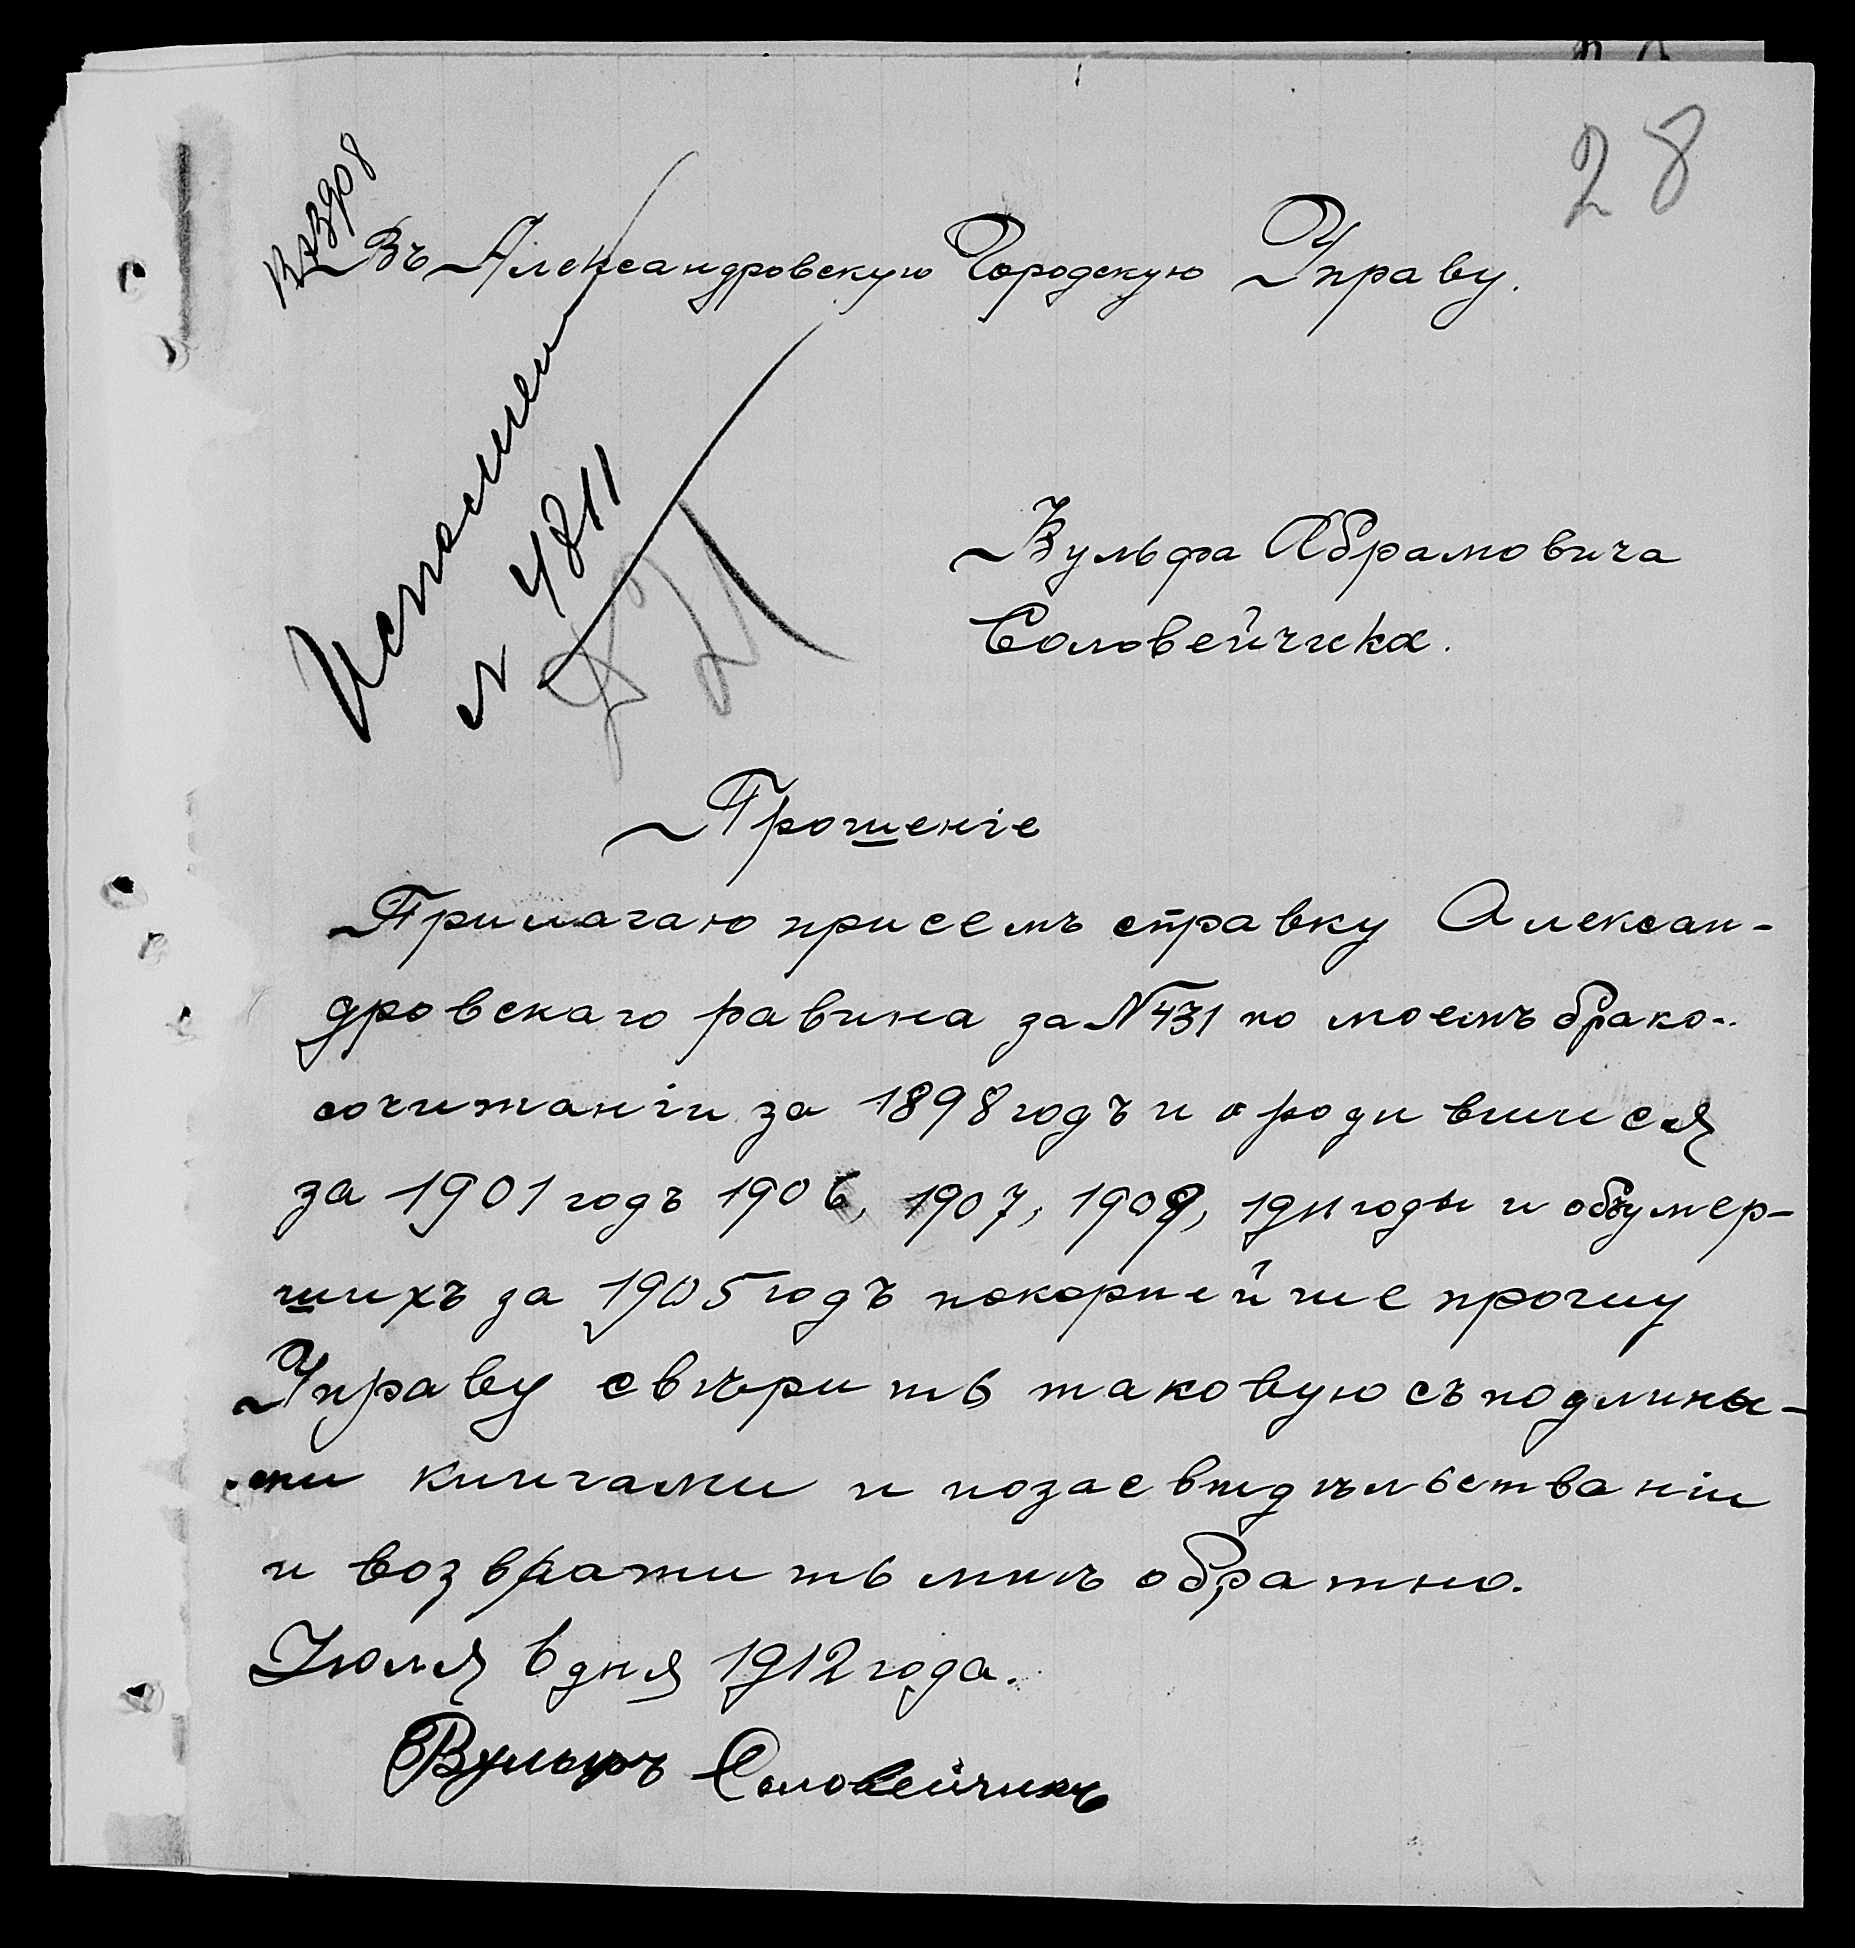 28
Въ Александровскую Городскую Управу.
№ 4811
Вульфа Абрамовича
Соловейчика.
Прошеніе
Прилагаю присемъ справку Алексан-
дровскаго равина за №431 по моемъ брако-
сочитаніи за 1898 годъ и о родившися
за 1901 годъ 1906, 1907, 1909, 1911 годы и объумер-
шихъ за 1905 годъ покорнейше прошу
Управу свѣрить таковую съ подлины-
ми книгами и позасвидѣльствованіи
и возвратить мнѣ обратно.
Июля 6 дня 1912 года.
Вульфъ Соловейчикъ